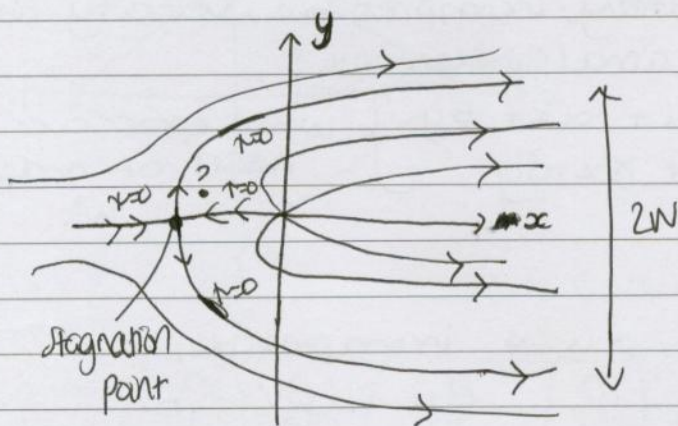 y
ψ=0
ψ=0
?
ψ=0
x
2W
ψ=0
stagnation
point